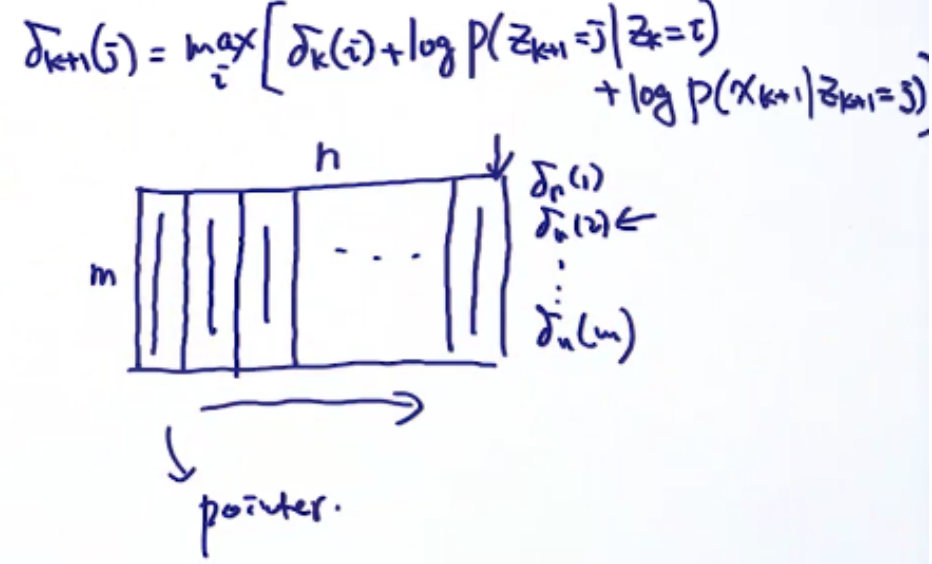 δₖ₊₁(j) = max_i [ δₖ(i) + log p(zₖ₊₁ = j | zₖ = i)
+ log p(xₖ₊₁ | zₖ₊₁ = j) ]
n
m
. . .
δₙ(1)
δₙ(2) ←
⋮
δₙ(m)
pointer.